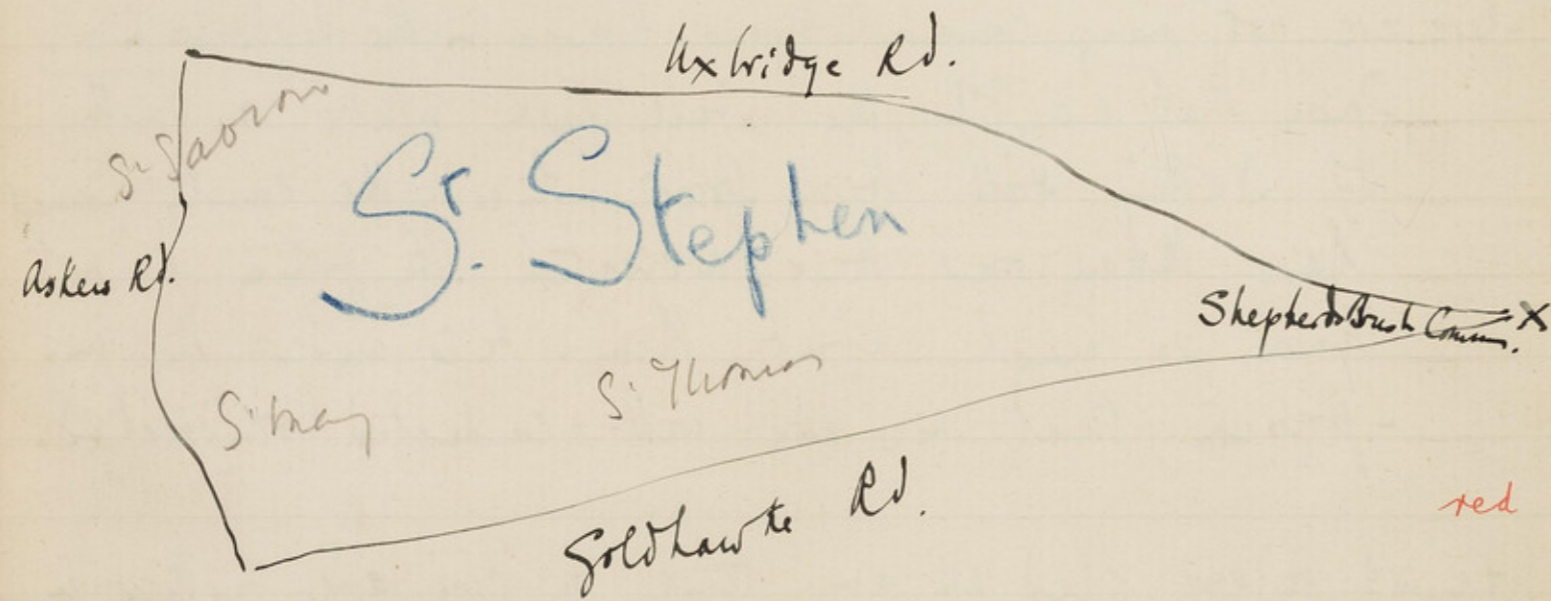 Uxbridge Rd.
St Saviour
St. Stephen
Askew Rd.
Shepherds Bush Comm.
X
St Thomas
St Mary
Goldhawke Rd.
red